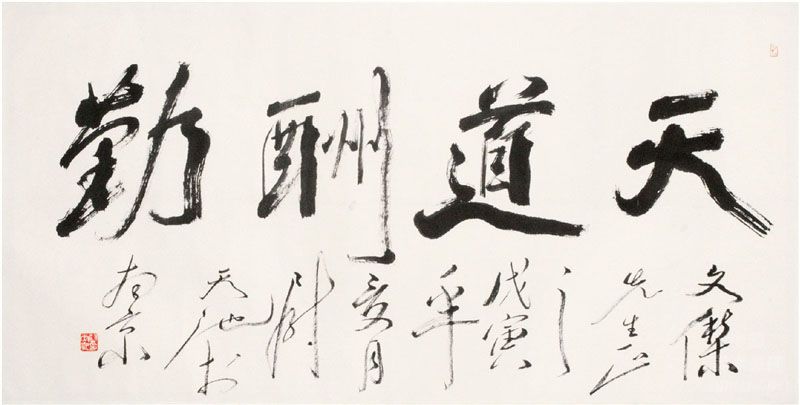 天道酬勤
文傑
先生正
之
戊寅
年
夏月
尉
天池书
南京